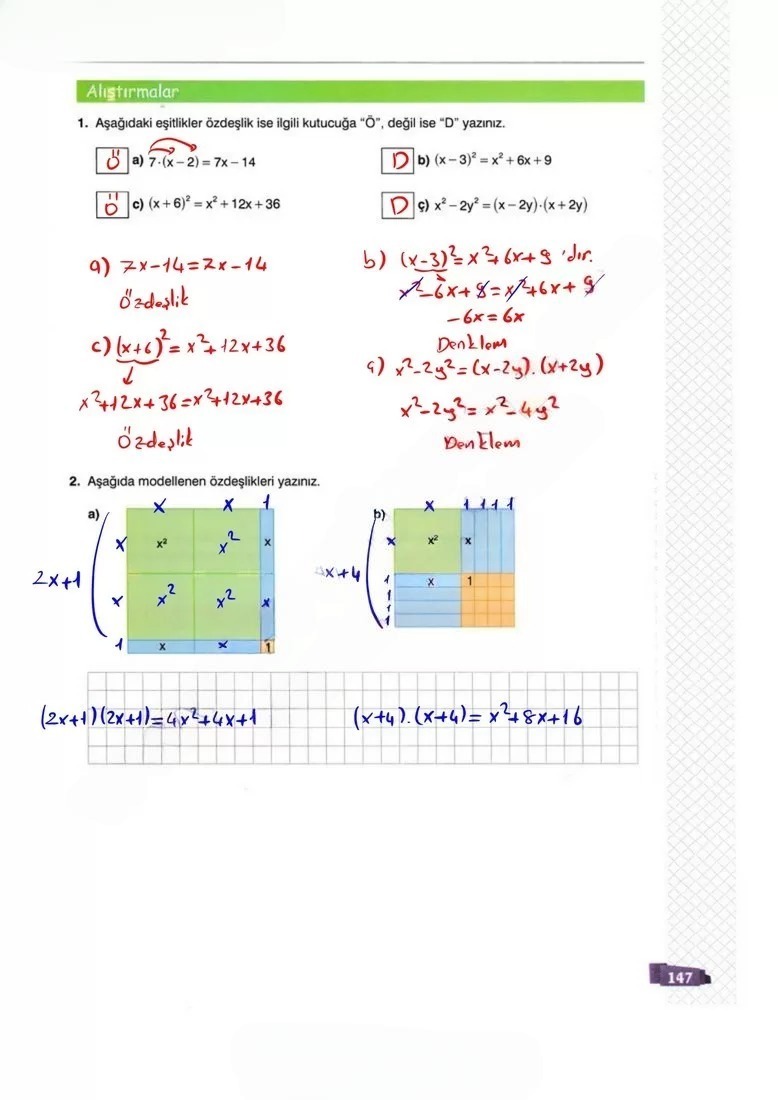 Alıştırmalar
1. Aşağıdaki eşitlikler özdeşlik ise ilgili kutucuğa “Ö”, değil ise “D” yazınız.
Ö a) 7·(x – 2) = 7x – 14
D b) (x – 3)² = x² + 6x + 9
Ö c) (x + 6)² = x² + 12x + 36
D ç) x² – 2y² = (x – 2y)·(x + 2y)
a) 7x-14=7x-14
Özdeşlik
c) (x+6)² = x²+12x+36
x²+12x+36=x²+12x+36
Özdeşlik
b) (x-3)²=x²+6x+9 'dır.
x²-6x+9=x²+6x+9
-6x=6x
Denklem
ç) x²-2y²=(x-2y).(x+2y)
x²-2y²=x²-4y²
Denklem
2. Aşağıda modellenen özdeşlikleri yazınız.
a)
x x 1
x x² x² x
2x+1
x x² x² x
1 x x 1
b)
x 1 1 1 1
x x² x
x+4
1 x 1
1
1
1
(2x+1)(2x+1)=4x²+4x+1
(x+4).(x+4)=x²+8x+16
147